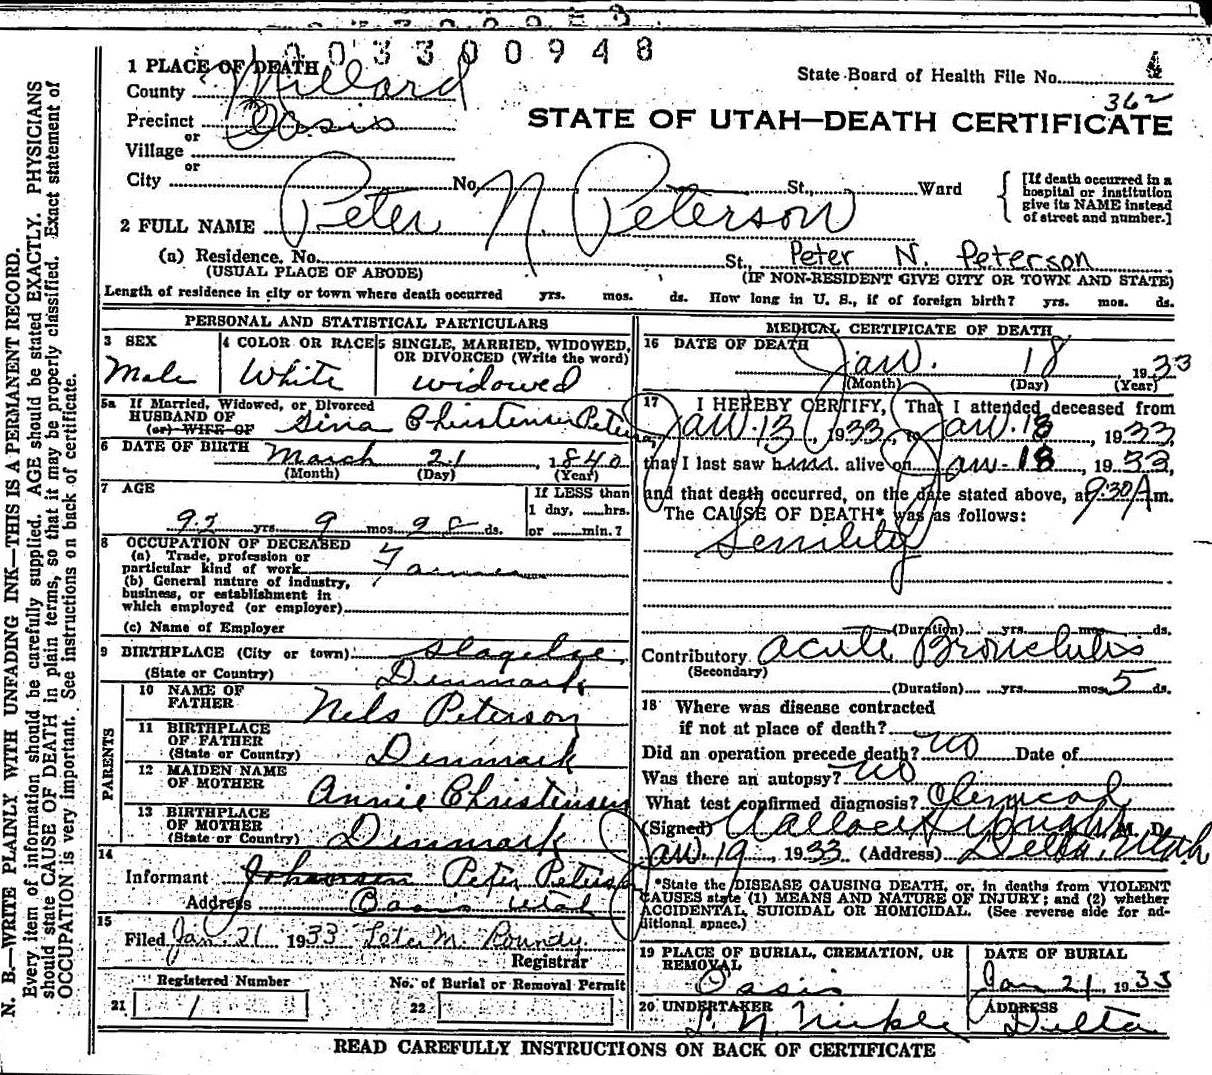 0 0 3 3 0 0 9 4 8
1 PLACE OF DEATH
County Millard
Precinct Oasis
or
Village
or
City No. St., Ward
State Board of Health File No. 4
362
STATE OF UTAH—DEATH CERTIFICATE
[If death occurred in a
hospital or institution
give its NAME instead
of street and number.]
2 FULL NAME Peter N. Peterson
(a) Residence. No. St., Peter N. Peterson
(USUAL PLACE OF ABODE) (IF NON-RESIDENT GIVE CITY OR TOWN AND STATE)
Length of residence in city or town where death occurred yrs. mos. ds. How long in U. S., if of foreign birth? yrs. mos. ds.
PERSONAL AND STATISTICAL PARTICULARS
3 SEX
Male
4 COLOR OR RACE
White
5 SINGLE, MARRIED, WIDOWED,
OR DIVORCED (Write the word)
widowed
5a If Married, Widowed, or Divorced
HUSBAND OF
(or) WIFE OF
Sina Christensen Peterson
6 DATE OF BIRTH March 21, 1840
(Month) (Day) (Year)
7 AGE
92 yrs. 9 mos. 28 ds.
If LESS than
1 day, hrs.
or min.?
8 OCCUPATION OF DECEASED
(a) Trade, profession or
particular kind of work Farmer
(b) General nature of industry,
business, or establishment in
which employed (or employer)
(c) Name of Employer
9 BIRTHPLACE (City or town) Slagelse,
(State or Country) Denmark
PARENTS
10 NAME OF
FATHER Nels Peterson
11 BIRTHPLACE
OF FATHER
(State or Country) Denmark
12 MAIDEN NAME
OF MOTHER Annie Christensen
13 BIRTHPLACE
OF MOTHER
(State or Country) Denmark
14
Informant Peter Peterson
Address Utah
15
Filed Jan 21 1933 Peter M. Roundy
Registrar
Registered Number
21 1
No. of Burial or Removal Permit
22
MEDICAL CERTIFICATE OF DEATH
16 DATE OF DEATH
Jan. 18 1933
(Month) (Day) (Year)
17 I HEREBY CERTIFY, That I attended deceased from
Jan. 13, 1933, to Jan. 18, 1933,
that I last saw him alive on Jan. 18, 1933,
and that death occurred, on the date stated above, at 9:30 A.m.
The CAUSE OF DEATH* was as follows:
Senility
(Duration) yrs. mos. ds.
Contributory Acute Bronchitis
(Secondary)
(Duration) yrs. mos. 5 ds.
18 Where was disease contracted
if not at place of death?
Did an operation precede death? No Date of
Was there an autopsy? No
What test confirmed diagnosis? Clinical
(Signed) Wallace M. D.
Jan. 19, 1933 (Address) Delta, Utah
*State the DISEASE CAUSING DEATH, or, in deaths from VIOLENT
CAUSES state (1) MEANS AND NATURE OF INJURY; and (2) whether
ACCIDENTAL, SUICIDAL OR HOMICIDAL. (See reverse side for ad-
ditional space.)
19 PLACE OF BURIAL, CREMATION, OR
REMOVAL
Oasis
DATE OF BURIAL
Jan 21, 1933
20 UNDERTAKER
ADDRESS
Delta
READ CAREFULLY INSTRUCTIONS ON BACK OF CERTIFICATE
N. B.—WRITE PLAINLY WITH UNFADING INK—THIS IS A PERMANENT RECORD.
Every item of information should be carefully supplied. AGE should be stated EXACTLY. PHYSICIANS
should state CAUSE OF DEATH in plain terms, so that it may be properly classified. Exact statement of
OCCUPATION is very important. See instructions on back of certificate.